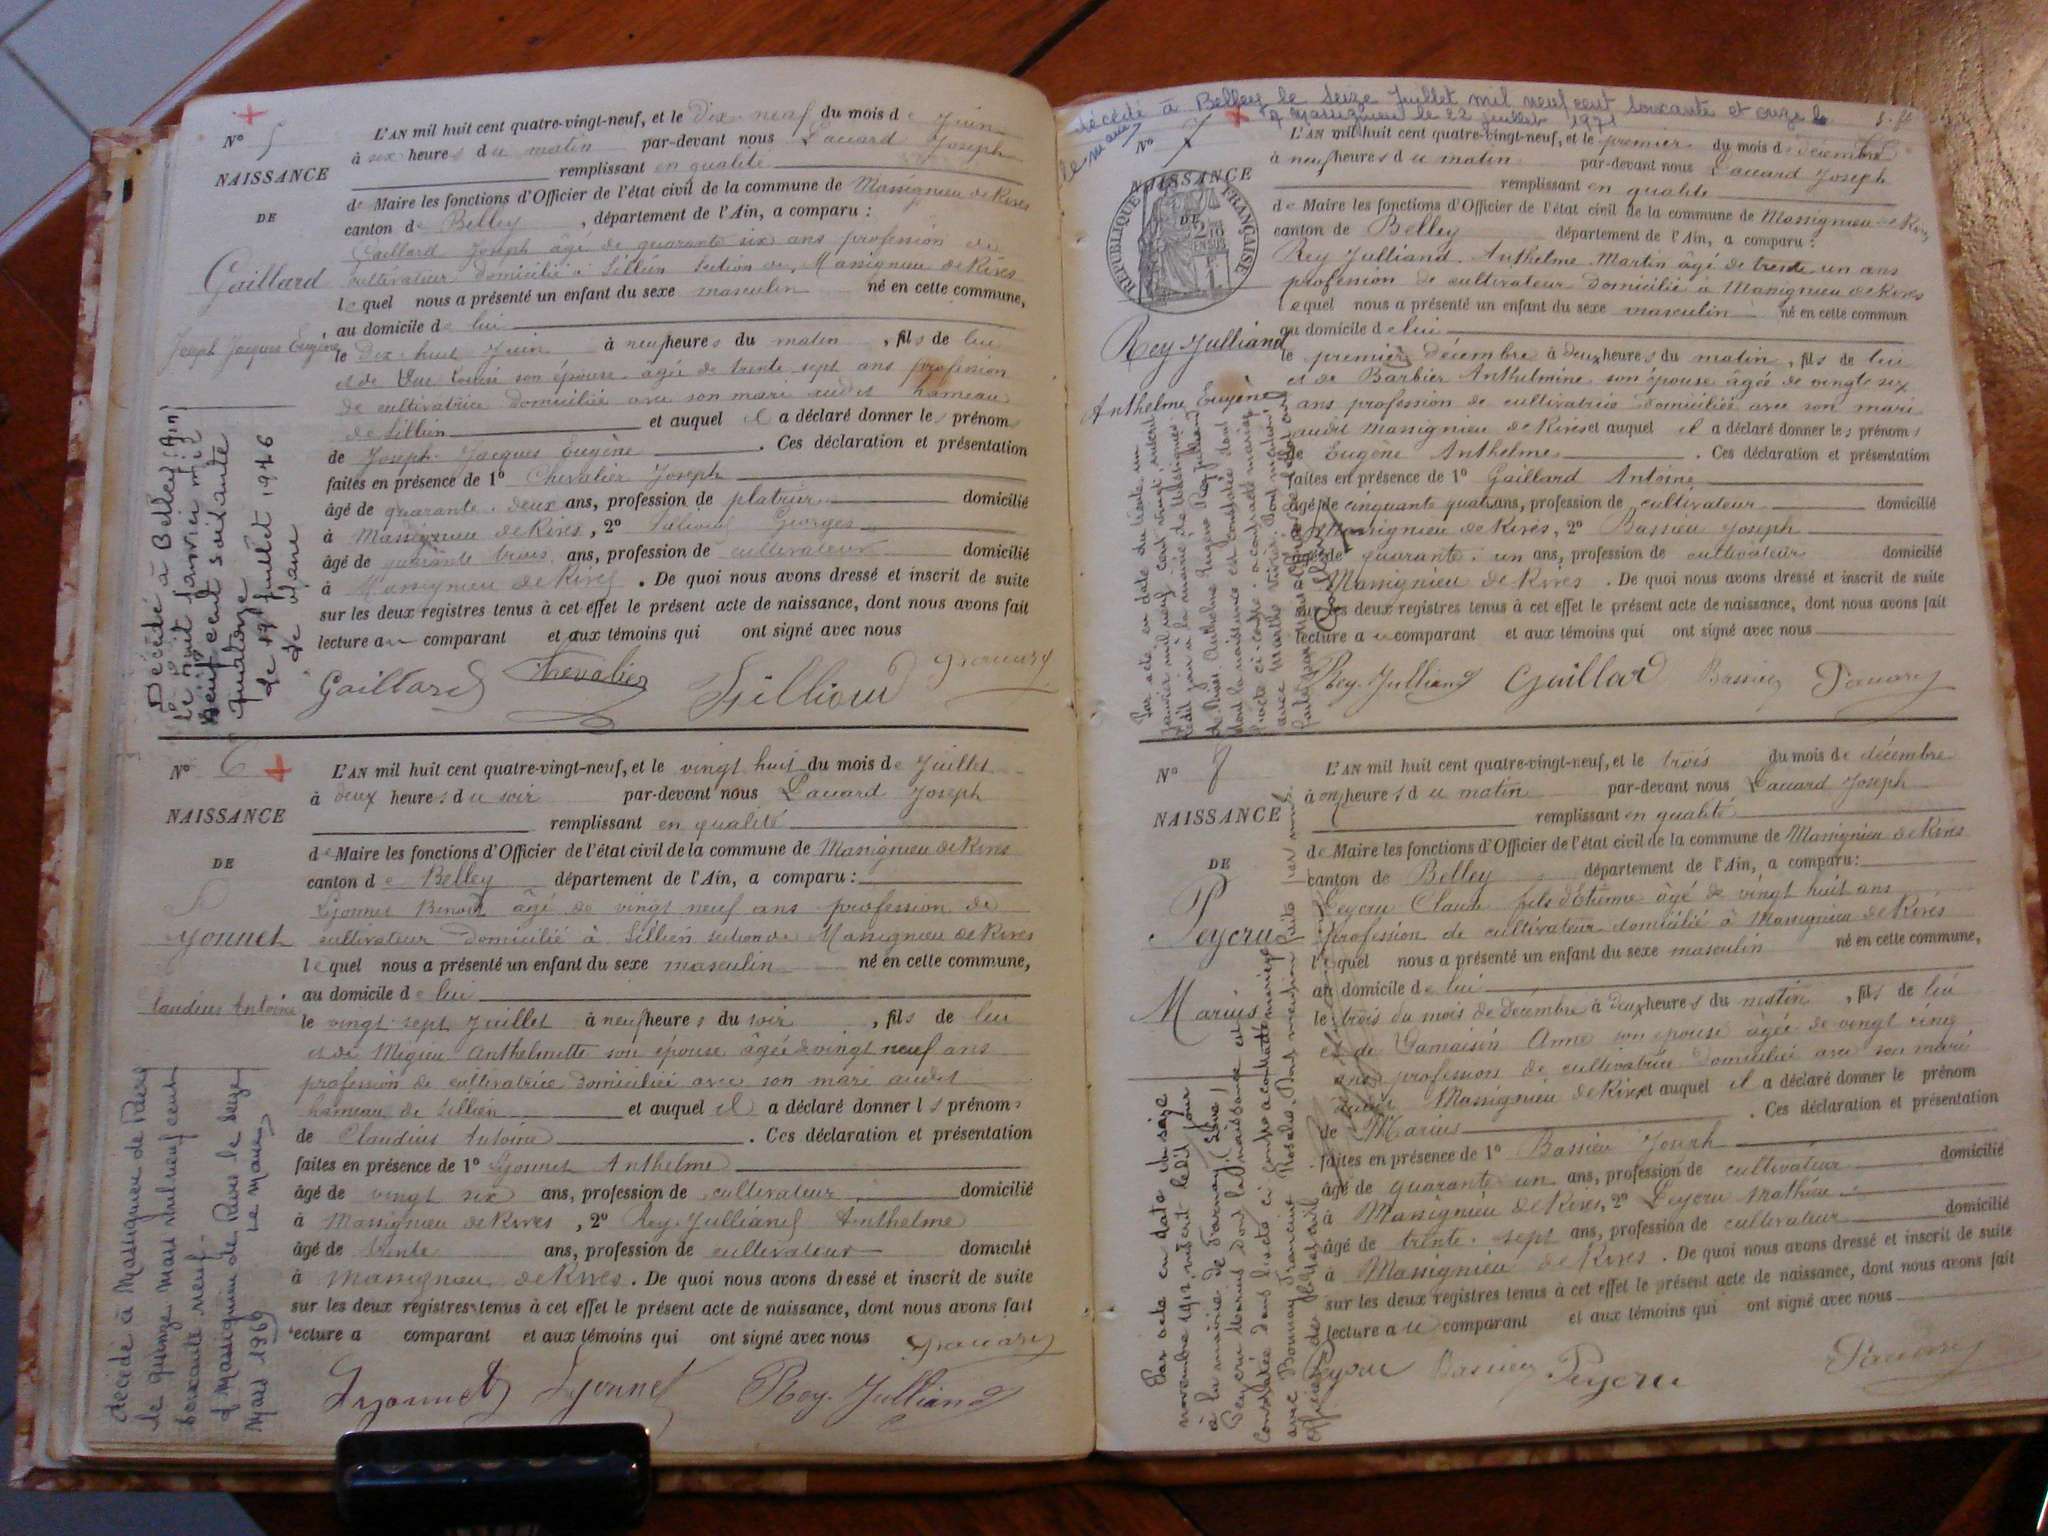 N° 5
NAISSANCE
DE
Gaillard
Joseph Jacques Eugène
L'AN mil huit cent quatre-vingt-neuf, et le Dix neuf du mois de Juin
à six heures du matin par-devant nous Pauard Joseph
remplissant en qualité
de Maire les fonctions d'Officier de l'état civil de la commune de Massignieu de Rives
canton de Belley, département de l'Ain, a comparu :
Gaillard Joseph âgé de quarante six ans profession de
cultivateur domicilié à Sillien section de Massignieu de Rives
lequel nous a présenté un enfant du sexe masculin né en cette commune,
au domicile de lui
le Dix huit Juin à neuf heures du matin, fils de lui
et de son épouse âgée de trente sept ans profession
de cultivatrice domiciliée avec son mari audit hameau
de Sillien et auquel il a déclaré donner les prénoms
de Joseph Jacques Eugène. Ces déclaration et présentation
faites en présence de 1° Chevalier Joseph
âgé de quarante deux ans, profession de platrier domicilié
à Massignieu de Rives, 2° Georges
âgé de quarante trois ans, profession de cultivateur domicilié
à Massignieu de Rives. De quoi nous avons dressé et inscrit de suite
sur les deux registres tenus à cet effet le présent acte de naissance, dont nous avons fait
lecture au comparant et aux témoins qui ont signé avec nous
Gaillard Chevalier Pauard
Décédé à Belley (Ain)
le huit janvier mil
neuf cent soixante
quatorze
Le Maire
N° 6
NAISSANCE
DE
Lyonnet
Claudius Antoine
L'AN mil huit cent quatre-vingt-neuf, et le vingt huit du mois de Juillet
à deux heures du soir par-devant nous Pauard Joseph
remplissant en qualité
de Maire les fonctions d'Officier de l'état civil de la commune de Massignieu de Rives
canton de Belley département de l'Ain, a comparu :
Lyonnet Benoit âgé de vingt neuf ans profession de
cultivateur domicilié à Sillien section de Massignieu de Rives
lequel nous a présenté un enfant du sexe masculin né en cette commune,
au domicile de lui
le vingt sept Juillet à neuf heures du soir, fils de lui
et de Migieu Anthelmette son épouse âgée de vingt neuf ans
profession de cultivatrice domiciliée avec son mari audit
hameau de Sillien et auquel il a déclaré donner ls prénoms
de Claudius Antoine. Ces déclaration et présentation
faites en présence de 1° Lyonnet Anthelme
âgé de vingt six ans, profession de cultivateur domicilié
à Massignieu de Rives, 2° Rey-Julliand Anthelme
âgé de trente ans, profession de cultivateur domicilié
à Massignieu de Rives. De quoi nous avons dressé et inscrit de suite
sur les deux registres tenus à cet effet le présent acte de naissance, dont nous avons fait
lecture a comparant et aux témoins qui ont signé avec nous
Lyonnet Lyonnet Rey-Julliand Pauard
décédé à Massignieu de Rives
le quinze mars mil neuf cent
soixante neuf.
à Massignieu de Rives le seize
Mars 1969 Le Maire
décédé à Belley le seize Juillet mil neuf cent soixante et onze
à Massignieu le 22 juillet 1971
le maire
N° 7
NAISSANCE
DE
RÉPUBLIQUE FRANÇAISE
Rey Julliand
Anthelme Eugène
L'AN mil huit cent quatre-vingt-neuf, et le premier du mois de décembre
à neuf heures du matin par-devant nous Pauard Joseph
remplissant en qualité
de Maire les fonctions d'Officier de l'état civil de la commune de Massignieu de Rives
canton de Belley département de l'Ain, a comparu :
Rey Julliand Anthelme Martin âgé de trente un ans
profession de cultivateur domicilié à Massignieu de Rives
lequel nous a présenté un enfant du sexe masculin né en cette commun
au domicile de lui
le premier décembre à deux heures du matin, fils de lui
et de Barbier Anthelmine son épouse âgée de vingt six
ans profession de cultivatrice domiciliée avec son mari
audit Massignieu de Rives et auquel il a déclaré donner les prénoms
de Eugène Anthelme. Ces déclaration et présentation
faites en présence de 1° Gaillard Antoine
âgé de cinquante quatre ans, profession de cultivateur domicilié
à Massignieu de Rives, 2° Bassieu Joseph
âgé de quarante un ans, profession de cultivateur domicilié
Massignieu de Rives. De quoi nous avons dressé et inscrit de suite
sur les deux registres tenus à cet effet le présent acte de naissance, dont nous avons fait
lecture au comparant et aux témoins qui ont signé avec nous
Rey-Julliand Gaillard Bassieu Pauard
N° 8
NAISSANCE
DE
Peycru
Marius
L'AN mil huit cent quatre-vingt-neuf, et le trois du mois de décembre
à onze heures du matin par-devant nous Pauard Joseph
remplissant en qualité
de Maire les fonctions d'Officier de l'état civil de la commune de Massignieu de Rives
canton de Belley département de l'Ain, a comparu :
Peycru Claude fils d'Etienne âgé de vingt huit ans
profession de cultivateur domicilié à Massignieu de Rives
lequel nous a présenté un enfant du sexe masculin né en cette commune,
au domicile de lui
le trois du mois de Décembre à deux heures du matin, fils de lui
et de Anne son épouse âgée de vingt cinq
ans profession de cultivatrice domiciliée avec son mari
audit Massignieu de Rives et auquel il a déclaré donner le prénom
de Marius. Ces déclaration et présentation
faites en présence de 1° Bassieu Joseph
âgé de quarante un ans, profession de cultivateur domicilié
à Massignieu de Rives, 2° Peycru Mathieu
âgé de trente sept ans, profession de cultivateur domicilié
à Massignieu de Rives. De quoi nous avons dressé et inscrit de suite
sur les deux registres tenus à cet effet le présent acte de naissance, dont nous avons fait
lecture au comparant et aux témoins qui ont signé avec nous
Peycru Bassieu Peycru Pauard
Par acte en date du seize
novembre 1912, inscrit ledit jour
à la mairie de
Peycru Marius dont la naissance est
constatée dans l'acte ci contre a contracté mariage
avec